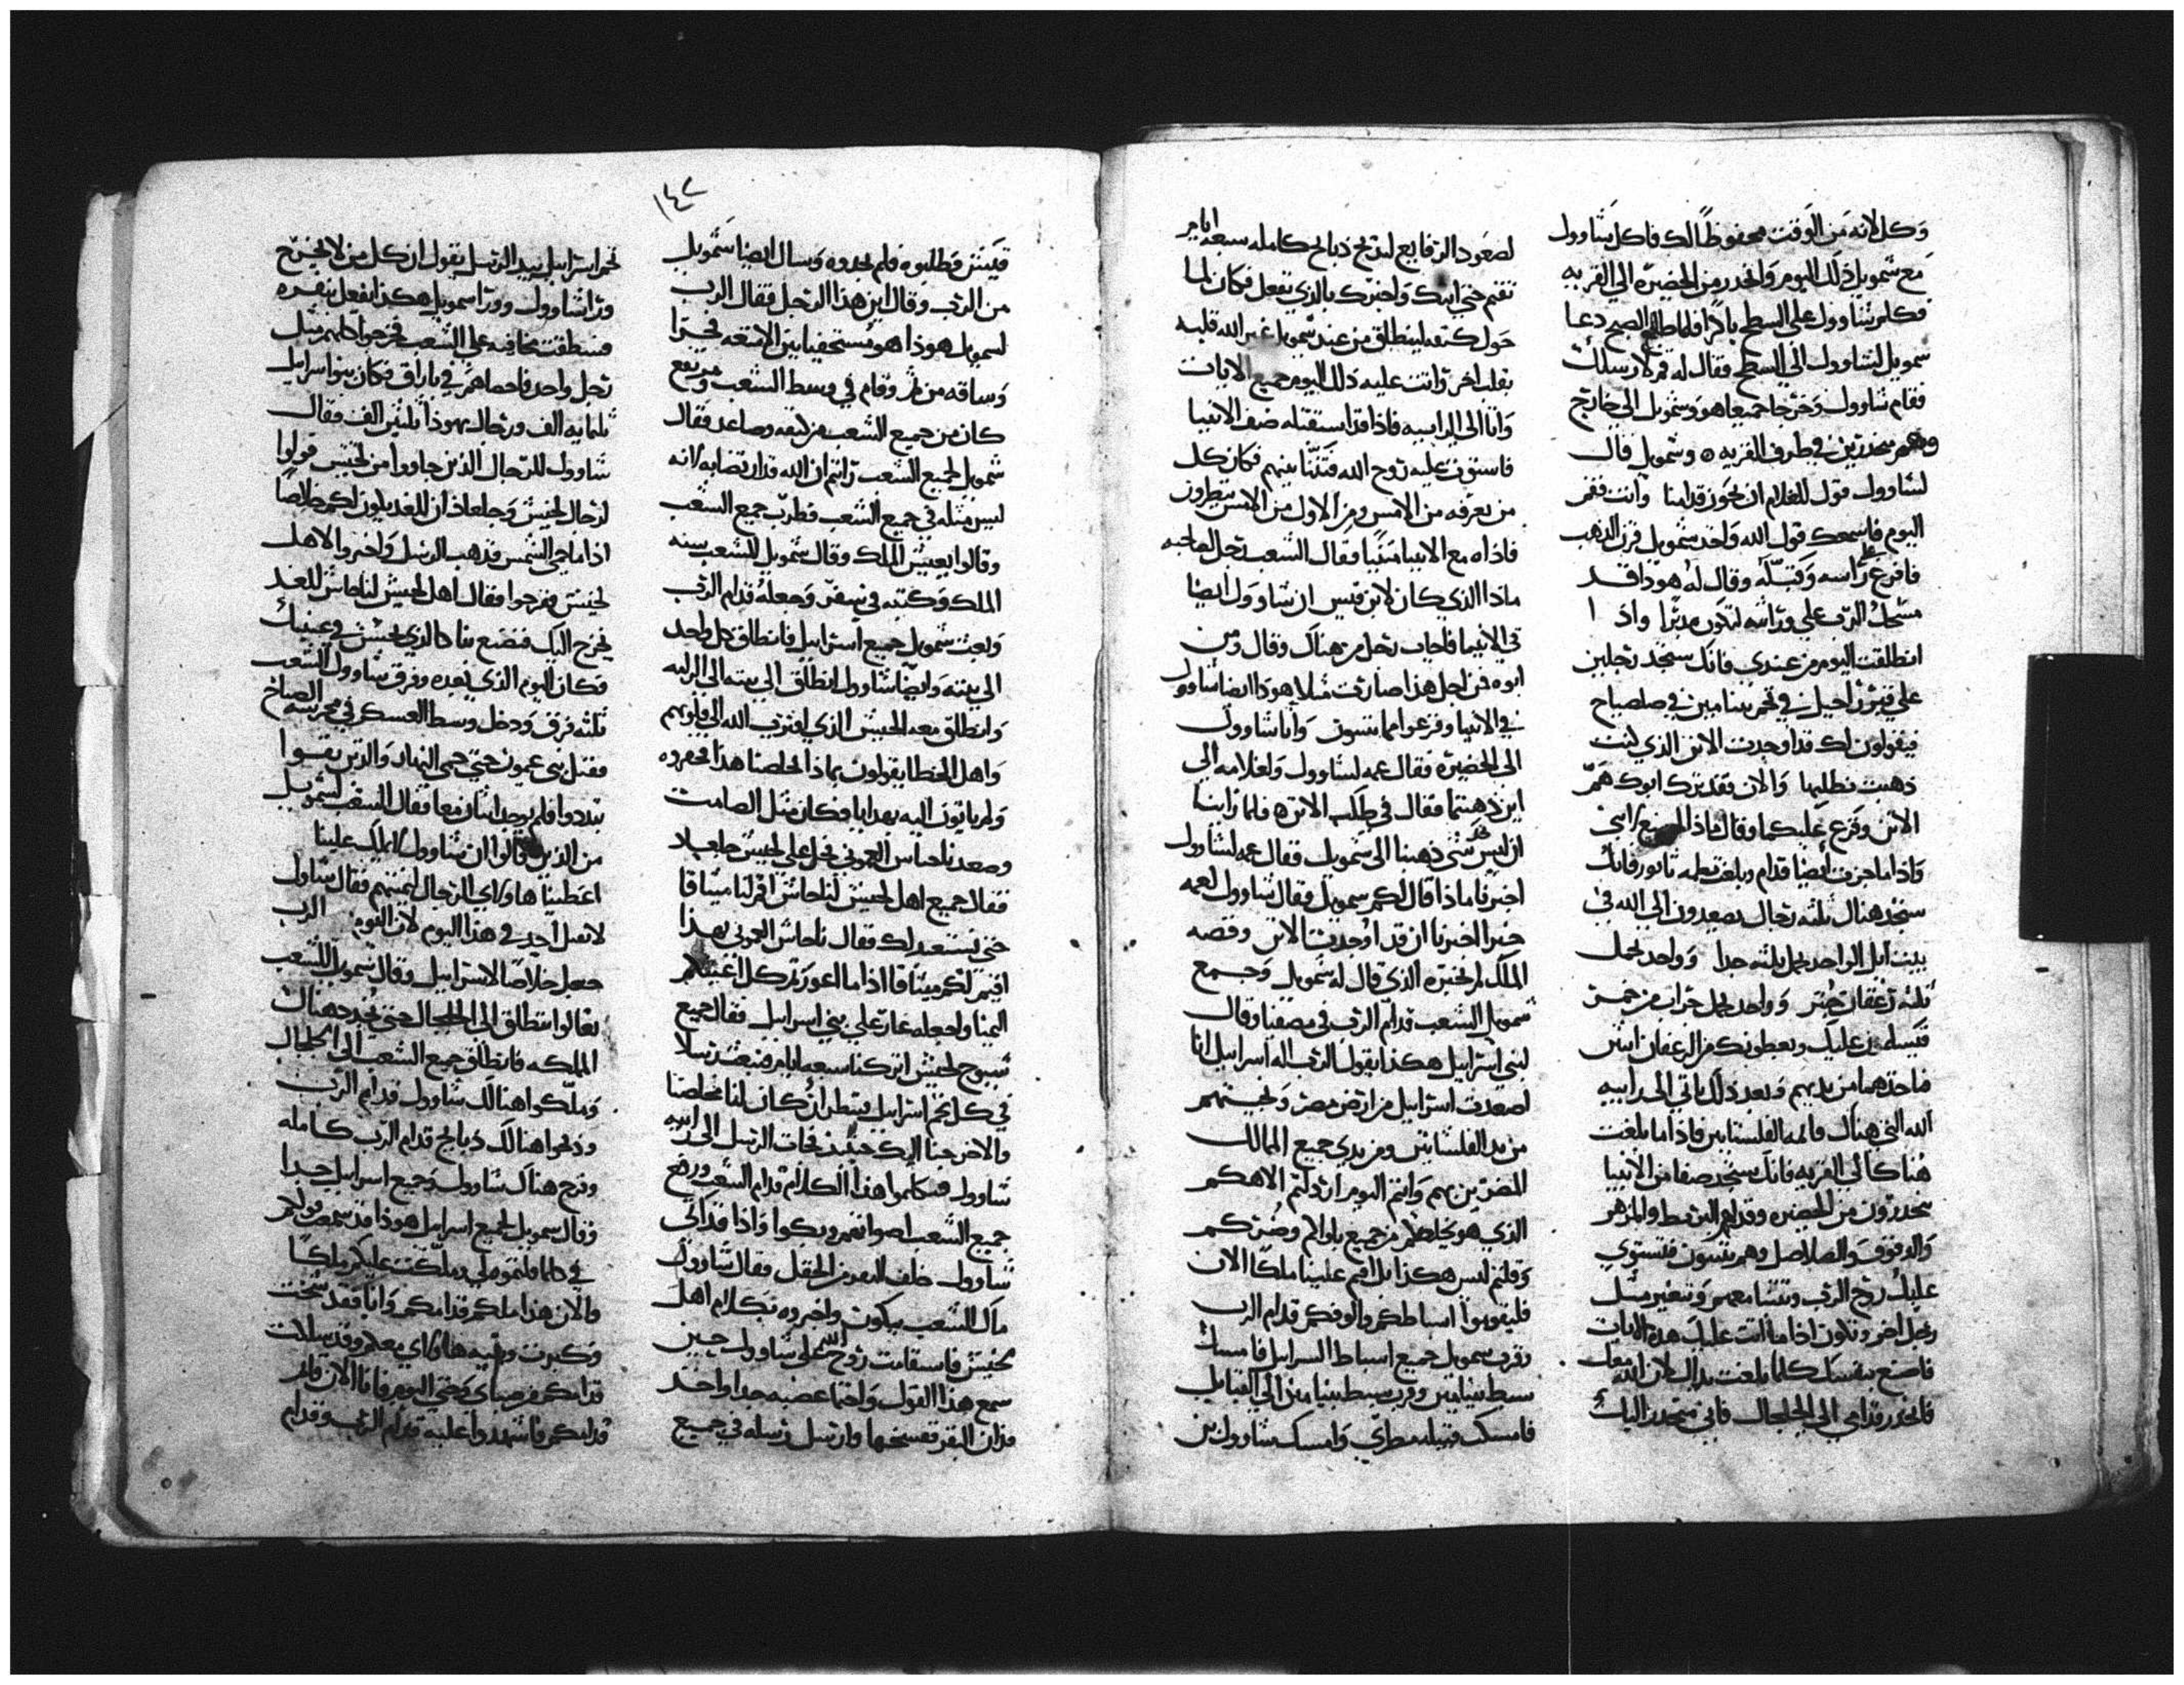 وكل لانه من الوقت محفوظاً لك فاكل شاوول
مع شمويل ذلك اليوم وانحدر من الحضيره الي القريه
فكلم شاوول علي السطح باكرا فلما طلع الصبح دعا
سمويل لشاوول الي السطح فقال له قم لارسلك
فقام شاوول وخرجا جميعا هو وشمويل الي خارج
وهم منحدرين في طرف القريه وشمويل قال
لشاوول قول للغلام ان يجوز قدامنا وانت فقم
اليوم فاسمعك قول الله واخذ شمويل قرن الدهب
فافرغ علي راسه وقبله وقال له هوذا قد
مسحك الرب علي وراثته لتكون مدبرا واذا
انطلقت اليوم من عندي فانك ستجد رجلين
علي قبر راحيل في تخم بنيامين في صلصاح
فيقولون لك قد اوجدت الاتن الذي كنت
ذهبت تطلبها والان فقد ترك ابوك هم
الاتن وفزع عليكما وقال ماذا اصنع لابني
واذا ما جزت ايضا قدام وبلغت بطمه تابور فانك
ستجد هناك ثلثه رجال يصعدون الي الله في
بيت ايل الواحد يحمل ثلثه جدا وواحد يحمل
ثلثه رغفان خبز وواحد يحمل جراب من خمر
فيسلمون عليك ويعطونك من الرغفان اثنين
فاخذهما من يديهم وبعد ذلك ياتي الي رابيه
الله التي هناك قايمه الفلسطانيين فاذا ما بلغت
هناك الي القريه فانك ستجد صفا من الانبيا
ينحدرون من الحضيره وقدامهم البربط والمزهر
والدفوف والصلاصل وهم يتنبون فتستوي
عليك روح الرب وتتنبا معهم وتتغير مثل
رجل اخر وتكون اذا ما اتت عليك هذه الايات
فاصنع بنفسك كلما بلغت يداك لان الله معك
فانحدر قدامي الي الجلجال فاني منحدر اليك
لصعود الرفايع لتذبح ذبايح كامله سبعه ايام
تقيم حتي اتيك واخبرك بالذي تفعل فكان لما
حول كتفه لينطلق من عند شمويل غير الله قلبه
بقلب اخر واتت عليه ذلك اليوم جميع الايات
واتا الي الرابيه فاذا قد استقبله صف الانبيا
فاستوت عليه روح الله فتنبا بينهم فكان كل
من يعرفه من الامس ومن الاول من الامس ينظرون
فاذاه مع الانبيا متنبيا فقال الشعب رجل لصاحبه
ماذا الذي كان لابن قيس ان شاوول ايضا
في الانبيا فاجاب رجل من هناك وقال ومن
ابوه من اجل هذا صارت مثلا هوذا ايضا شاوول
في الانبيا وفرغوا مما يتنبون واتا شاوول
الي الحضيره فقال عمه لشاوول ولغلامه الي
اين ذهبتما فقال في طلب الاتن فلما راينا
ان ليس شي ذهبنا الي شمويل فقال عمه لشاوول
اخبرنا ماذا قال لكم سمويل فقال شاوول لعمه
خبرا اخبرنا ان قد اوجدت الاتن وقصه
الملك لم يخبره الذي قال له شمويل وجمع
شمويل الشعب قدام الرب في مصفيا وقال
لبني اسرايل هكذا يقول الرب اله اسراييل انا
اصعدت اسراييل من ارض مصر ونجيتهم
من يد الفلسطانيين ومن يدي جميع الممالك
المضرين بهم وانتم اليوم ارذلتم الاهكم
الذي هو يخلصكم من جميع بلواكم وضركم
وقلتم ليس هكذا بل اقم علينا ملكا الان
فليقوموا اسباطكم والوفكم قدام الرب
وقرب سمويل جميع اسباط اسرايل فامسك
سبط بنيامين وقرب سبط بنيامين الي القبايل
فامسكت قبيله مطري وامسك شاوول بن
١٤٢
قيس وطلبوه فلم يجدوه وسال ايضا شمويل
من الرب وقال اين هذا الرجل فقال الرب
لسمويل هوذا هو مستخفيا بين الامتعه فجرا
وساقه من ثم وقام في وسط الشعب ومرتفع
كان من جميع الشعب من كتفه وصاعد فقال
شمويل لجميع الشعب رايتم ان الله قد ارتضا به لانه
ليس مثله في جميع الشعب فطرب جميع الشعب
وقالوا يعيش الملك وقال شمويل للشعب سنه
الملك وكتبه في سفر وجعله قدام الرب
وبعث شمويل جميع اسراييل فانطلق كل واحد
الي بيته وايضا شاوول انطلق الي بيته الي الرابيه
وانطلق معه الجيش الذي اقترب الله الي قلوبهم
واهل الخطا يقولون بماذا يخلصنا هذا فحقروه
ولم ياتون اليه بهدايا وكان مثل الصامت
وصعد ناحاس العموني فحل علي يابيش جلعاد
فقال جميع اهل يابيش لناحاش اقم لنا ميثاقا
حتي نستعبد لك فقال ناحاش العموني بهذا
اقيم لكم ميثاقا اذا ما اعورتم كل اعينكم
اليمنا واجعله عار علي بني اسراييل فقال جميع
شيوخ يابيش اتركنا سبعه ايام فنبعث رسلا
في كل تخم اسراييل وننظر ان كان لنا مخلصا
والا خرجنا اليك حينيذ فجات الرسل الي رابيه
شاوول فتكلموا هذا الكلام قدام الشعب ورفع
جميع الشعب اصواتهم وبكوا فاذا قد اتي
شاوول خلف البقر من الحقل فقال شاوول
مال الشعب يبكون واخبروه بكلام اهل
يابيش فاستقامت روح الله علي شاوول حين
سمع هذا القول واحتما غضبه جدا واخذ
فدان البقر ففسخها وارسل رسله في جميع
تخم اسراييل بيد الرسل يقول ان كل من لا يخرج
ورا شاوول وورا سمويل هكذا يفعل ببقره
فسقطت مخافه علي الشعب فخرجوا كلهم مثل
رجل واحد فاحصاهم في بازاق فكان بنوا اسراييل
ثلثمايه الف ورجال يهوذا ثلثين الف فقال
شاوول للرجال الذين جاووا من يابيش قولوا
لرجال يابيش وجلعاذ ان للغد يكون لكم خلاصا
اذا ما حمي الشمس فذهب الرسل واخبروا لاهل
يابيش ففرحوا فقال اهل يابيش لناحاش للغد
نخرج اليك فتصنع بنا كالذي يحسن في عينيك
فكان اليوم الذي بعده وفرق شاوول الشعب
ثلثه فرق ودخل وسط العسكر في محرسه الصباح
فقتل بني عمون حتي حمي النهار والذين بقيوا
تبددوا فلم يوجد اثنان معا فقال الشعب لشمويل
من الذين قالوا ان شاوول لا يملك علينا
اعطينا هاولاي الرجال لنميتهم فقال شاول
لا نقتل احد في هذا اليوم لان اليوم الرب
جعل خلاصا لاسراييل وقال شمويل للشعب
تعالوا ننطلق الي الجلجال حتي نجدد هناك
المملكه فانطلق جميع الشعب الي الجلجال
وملكوا هنالك شاوول قدام الرب
وذبحوا هنالك ذبايح قدام الرب كامله
وفرح هناك شاوول وجميع اسراييل جدا
وقال سمويل لجميع اسراييل هوذا قد سمعت قولكم
في كلما قلتموه لي وملكت عليكم ملكا
والان هذا ملككم قدامكم وانا فقد شخت
وكبرت وبنيه هاولاي معكم وقد سلكت
قدامكم من صباي وحتي اليوم فانا الان قايم
قدامكم فاشهدوا عليه قدام الرب وقدام